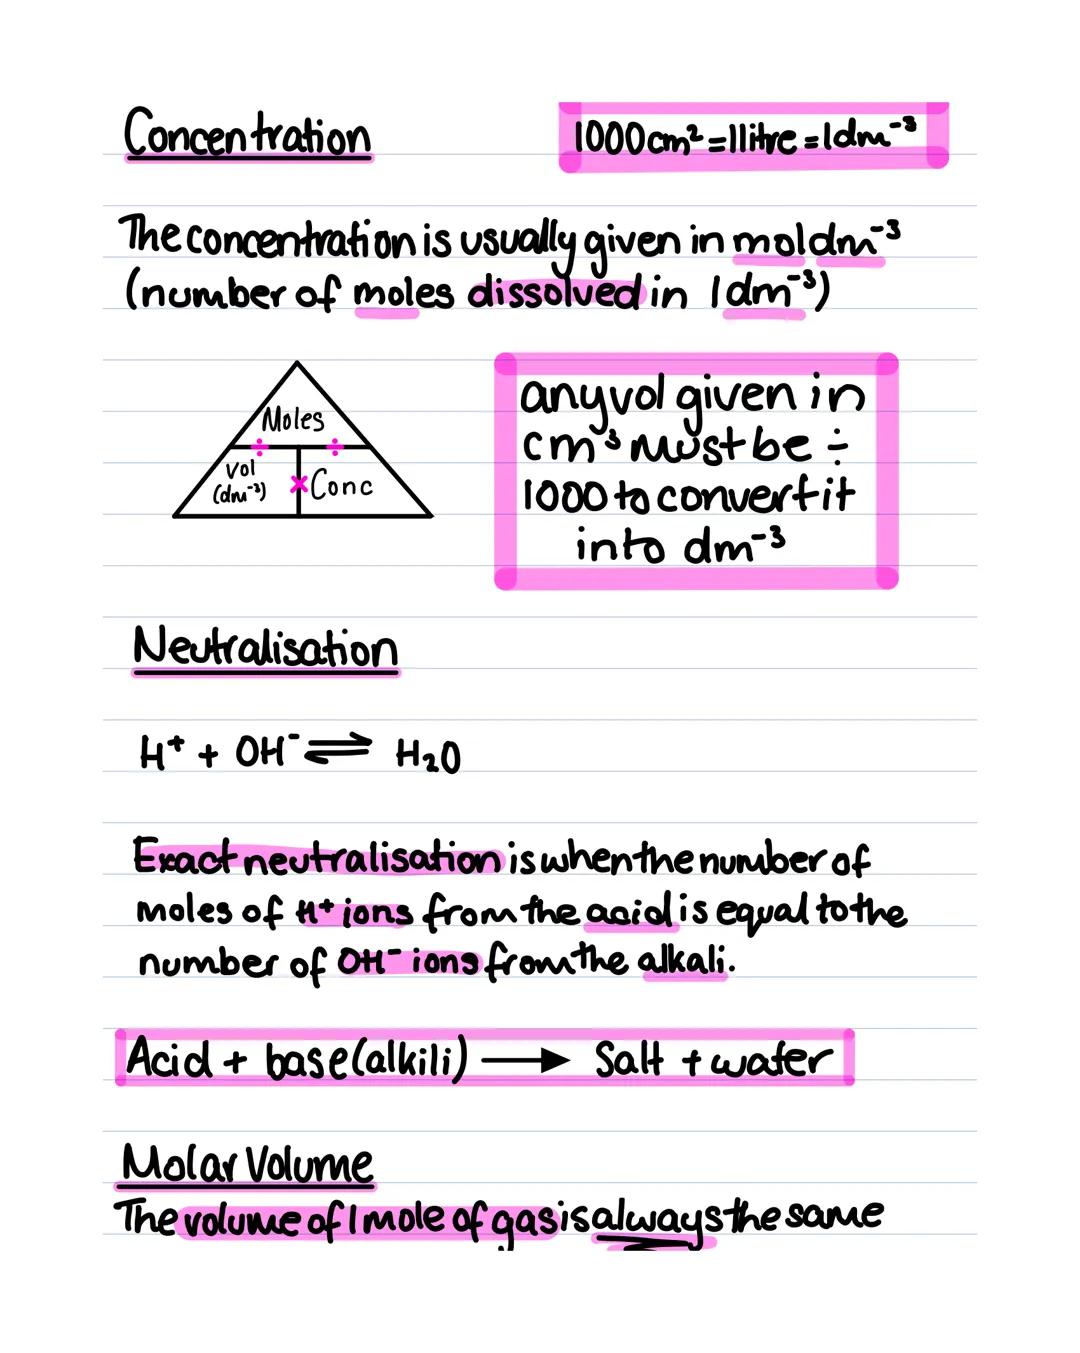 Concentration
1000cm²=1litre=1dm⁻³
The concentration is usually given in moldm⁻³
(number of moles dissolved in 1dm⁻³)
Moles
Vol
(dm⁻³)
× Conc
any vol given in
cm³ must be ÷
1000 to convert it
into dm⁻³
Neutralisation
H⁺ + OH⁻ ⇌ H₂O
Exact neutralisation is when the number of
moles of H⁺ ions from the acid is equal to the
number of OH⁻ ions from the alkali.
Acid + base(alkili) → Salt + water
Molar Volume
The volume of 1 mole of gas is always the same